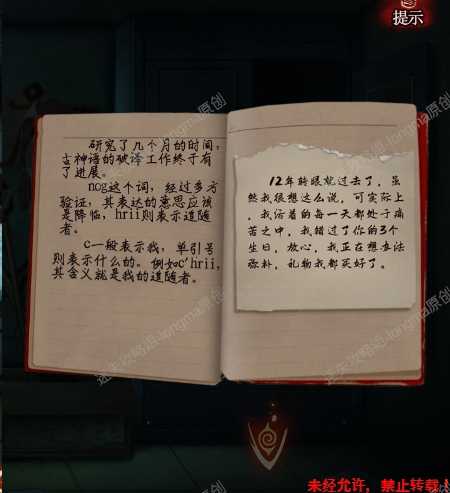 提示
研究了几个月的时间，
古神语的破译工作终于有
了进展。
nog这个词，经过多方
验证，其表达的意思应该
是降临，hrii则表示追随
者。
C一般表示我，单引号
则表示什么的。例如C'hrii，
其含义就是我的追随者。
12年转眼就过去了，虽
然我很想这么说，可实际上
，我活着的每一天都处于痛
苦之中，我错过了你的3个
生日，放心，我正在想办法
弥补，礼物我都买好了。
未经允许，禁止转载！